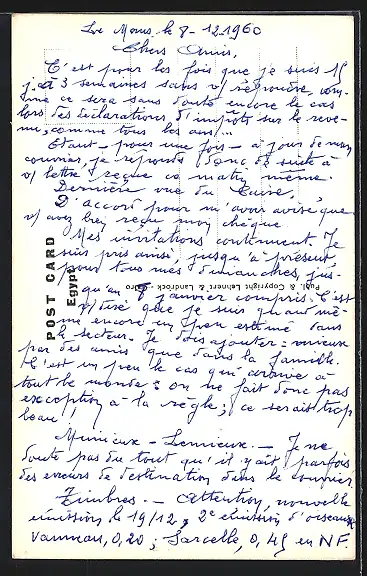 Le Mans, le 8-12.1960
Chers Amis,
C'est pour les fois que je suis 15
j. à 3 semaines sans v/ répondre, com-
me ce sera sans doute encore le cas
lors des déclarations d'impôts sur le reve-
nu, comme tous les ans...
Etant - pour une fois - à jour de mon
courrier, je réponds donc de suite à
v/ lettre reçue ce matin même.
Dernière vue du Caire.
D'accord pour m'avoir avisé que
v/ avez bien reçu mon chèque
Mes invitations continuent. Je
suis pris ainsi, jusqu'à présent,
pour tous mes dimanches, jus-
qu'au 8 janvier compris. C'est
v/ dire que je suis quand mê-
me encore un peu estimé dans
le secteur. Je dois ajouter: mieux
par des amis que dans la famille.
C'est un peu le cas qui arrive à
tout le monde: on ne fait donc pas
exception à la règle; ce serait trop
beau!
Munieux - Lemieux. - Je ne
doute pas du tout qu'il y ait parfois
des erreurs de destination dans le courrier.
Timbres. - Attention, nouvelle
émission, le 19/12, 2e émission d'oiseaux
vanneau, 0,20; Sarcelle, 0,45 en NF.
POST CARD
Egypt
Publ. & Copyright Lehnert & Landrock, Cairo